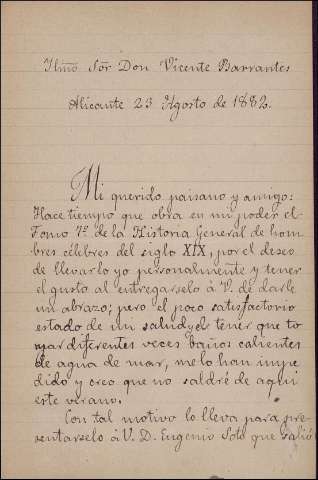 Ilmo Sor Don Vicente Barrantes
Alicante 23 Agosto de 1882.
Mi querido paisano y amigo:
Hace tiempo que obra en mi poder el
Tomo 7º de la Historia General de hom
bres célebres del siglo XIX, por el deseo
de llevarlo yo personalmente y tener
el gusto al entregarselo á V. de darle
un abrazo; pero el poco satisfactorio
estado de un salud y el tener que to
mar diferentes veces baños calientes
de agua de mar, me lo han impe
dido y creo que no saldré de aquí
este verano.
Con tal motivo lo lleva para pre
sentarselo á V. D. Eugenio Soto que salió